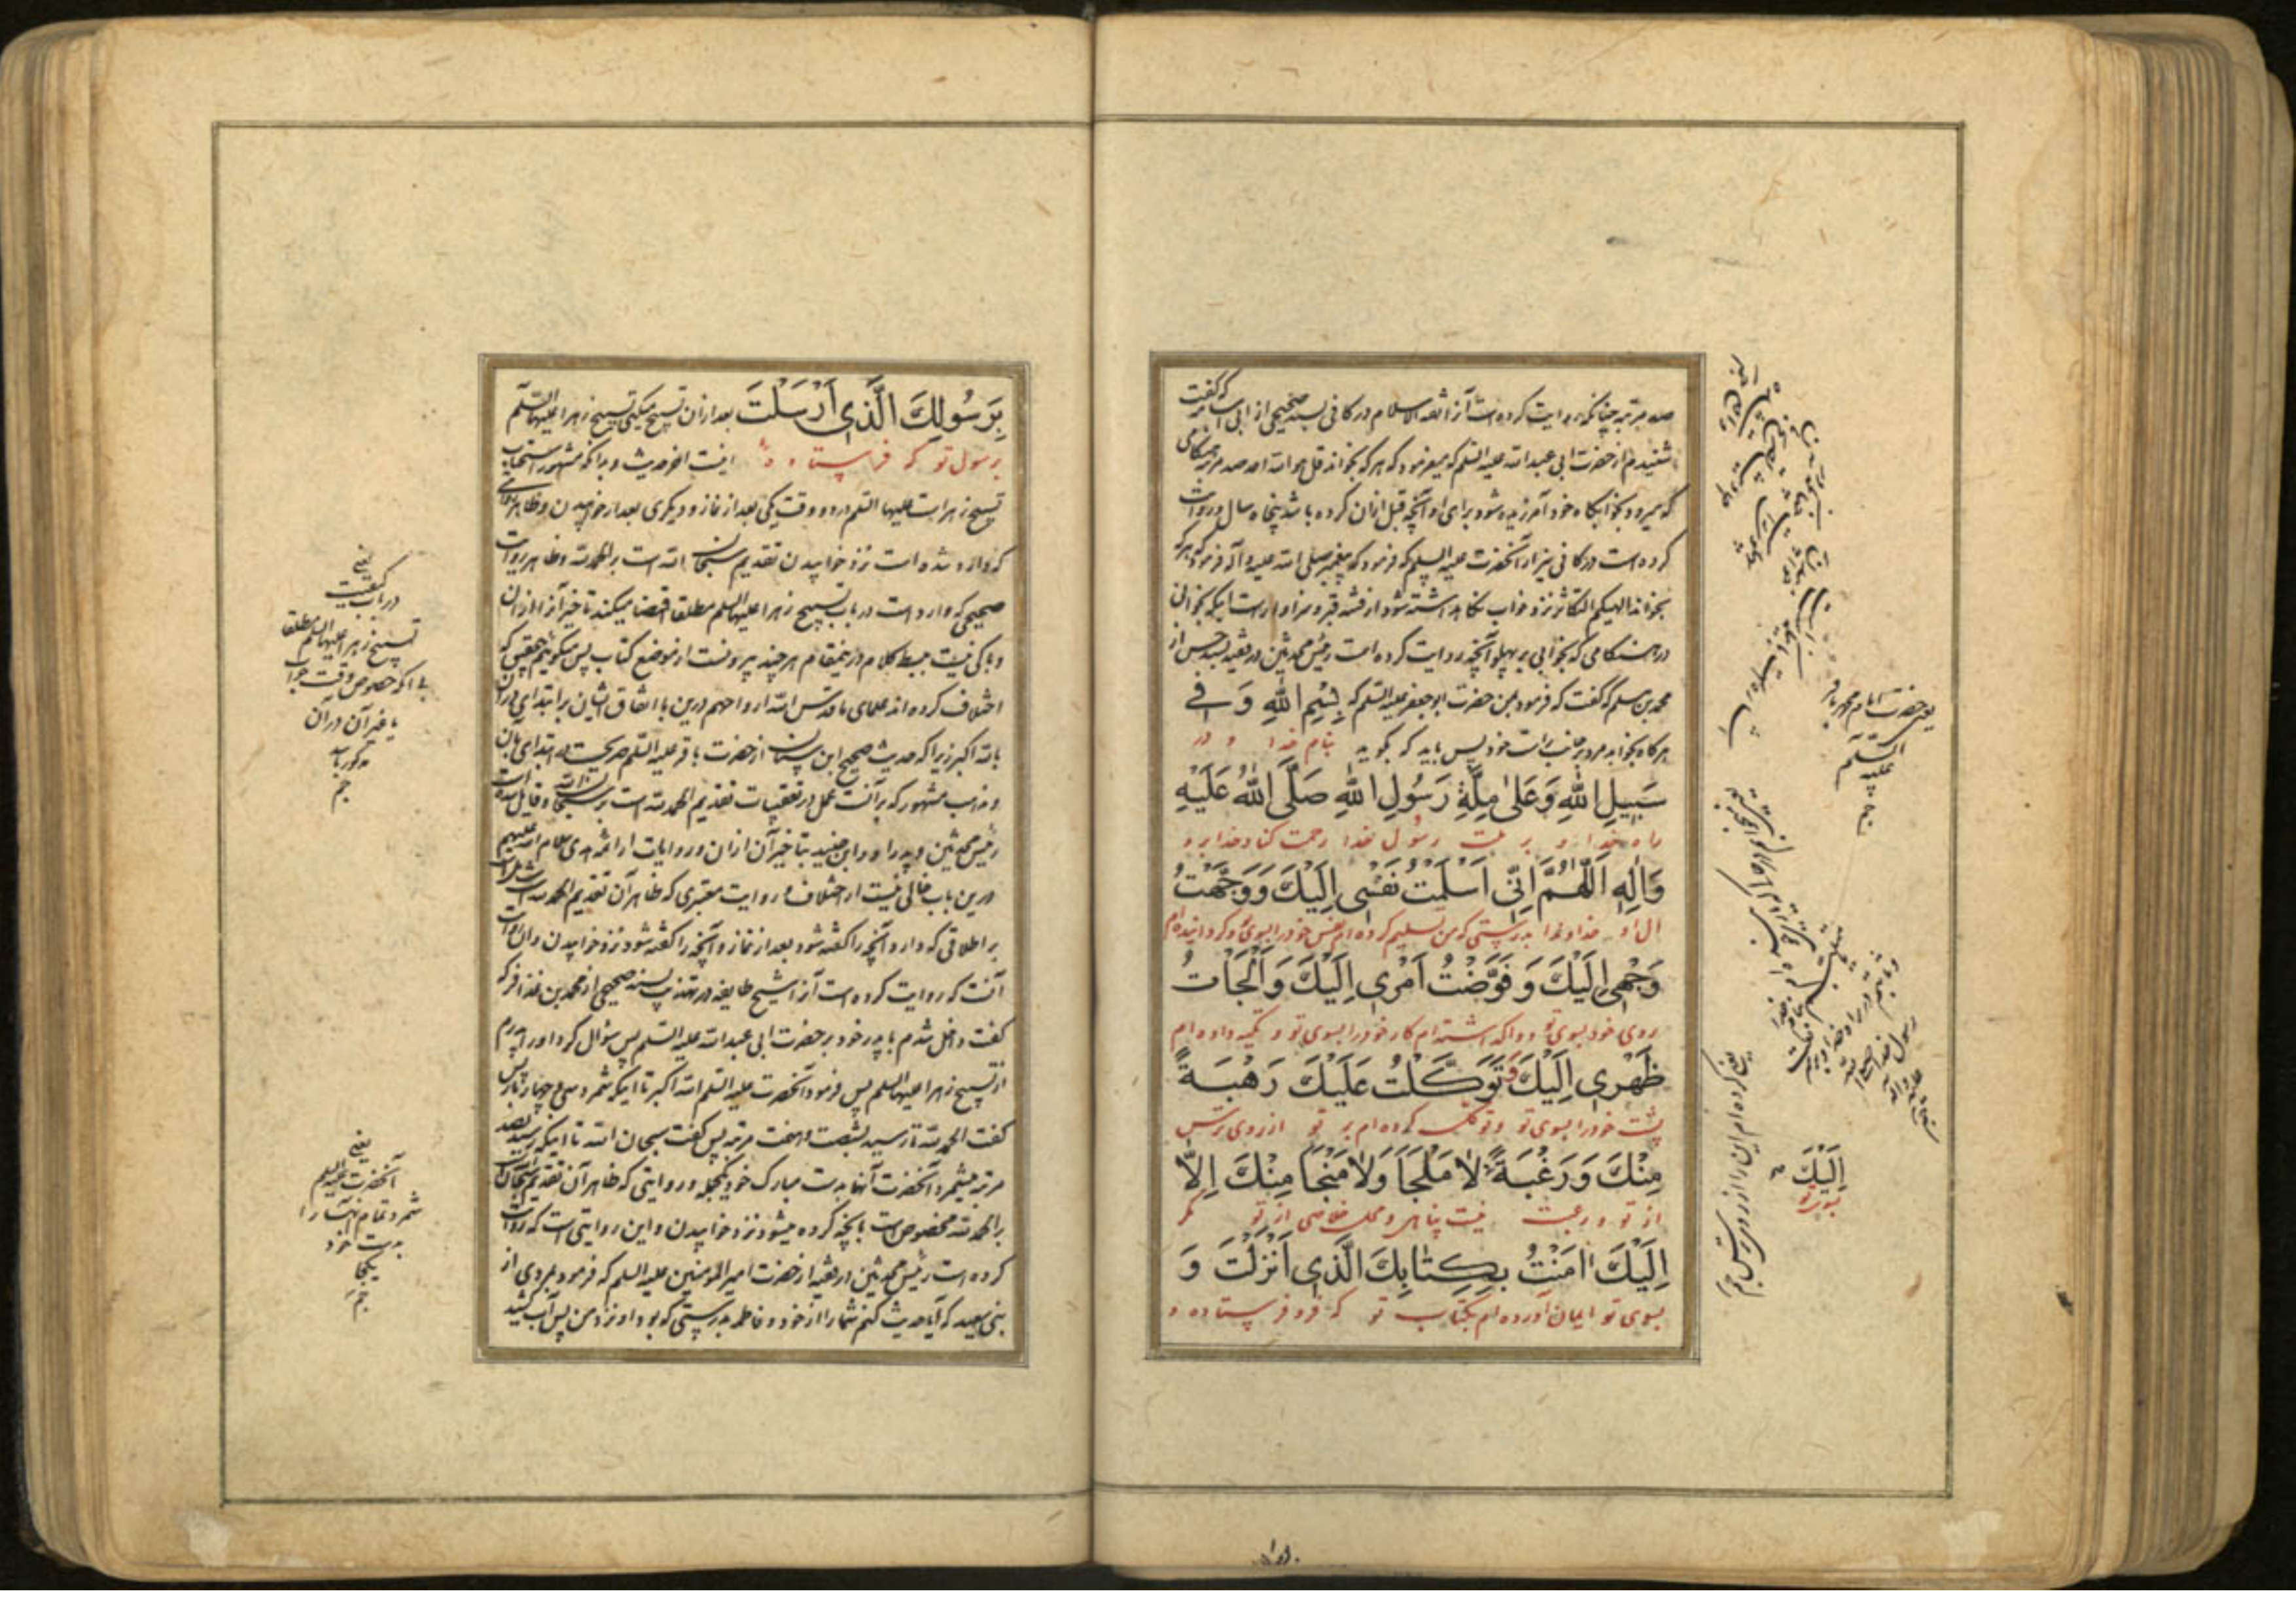 صد مرتبه چنانکه روایت کرده است آنرا ثقة الاسلام در کافی بسند صحیحی از ابی اسامه که گفت
شنیدم از حضرت ابی عبدالله علیه السلم که میفرمود که هر که بخواند قل هو الله احد صد مرتبه هنگامی
که میرود بخوابگاه خود آمرزیده شود برای او آنچه قبل ازان کرده باشد پنجاه سال و روایت
کرده است در کافی نیز از آنحضرت علیه السلم که فرمود که پیغمبر صلی الله علیه و آله فرمود که هر که
بخواند الهیکم التکاثر نزد خواب نگاه داشته شود از فتنه قبر و سزاوار است اینکه بخوانی
در هنگامی که بخوابی بر پهلو آنچه روایت کرده است رئیس محدثین در فقیه بسند حسن از
محمد بن مسلم که گفت که فرمود بمن حضرت ابو جعفر علیه السلم که بِسْمِ اللهِ وَ فِي
هرگاه بخوابد مرد بر جانب راست خود پس باید که بگوید بنام خدا و در
سَبِيلِ اللهِ وَعَلىٰ مِلَّةِ رَسُولِ اللهِ صَلَّى اللهُ عَلَيْهِ
راه خدا و بر ملت رسول خدا رحمت کناد خدا بر او
وَاٰلِهِ اَللّٰهُمَّ اِنّي اَسْلَمْتُ نَفْسي اِلَيْكَ وَوَجَّهْتُ
آل او خداوندا بدرستی که من تسلیم کرده ام نفس خود را بسوی تو و گردانیده ام
وَجْهي اِلَيْكَ وَفَوَّضْتُ اَمْري اِلَيْكَ وَاَلْجَأْتُ
روی خود بسوی تو و واگذاشته ام کار خود را بسوی تو و تکیه داده ام
ظَهْري اِلَيْكَ وَتَوَكَّلْتُ عَلَيْكَ رَهْبَةً
پشت خود را بسوی تو و توکل کرده ام بر تو از روی ترس
مِنْكَ وَرَغْبَةً لا مَلْجَأَ وَلا مَنْجَا مِنْكَ اِلاّ
از تو و رغبت نیست پناهی و محل خلاصی از تو مگر
اِلَيْكَ اٰمَنْتُ بِكِتٰابِكَ الَّذي اَنْزَلْتَ وَ
بسوی تو ایمان آورده ام بکتاب تو که فرو فرستاده و
یعنی حضرت امام محمد باقر
علیه السلم
اِلَيْكَ
بسوی تو
بِرَسُولِكَ الَّذي اَرْسَلْتَ بعد ازان تسبیح میکنی تسبیح زهرا علیها السلم
برسول تو که فرستاده اینست آخر حدیث و بدانکه مشهور استحباب
تسبیح زهراست علیها السلم در دو وقت یکی بعد از نماز و دیگری بعد از خوابیدن و ظاهر روایتی
که وارد شده است نزد خوابیدن تقدیم سبحان الله است بر الحمد لله و ظاهر روایت
صحیحی که وارد است در باب تسبیح زهرا علیها السلم مطلقا اقتضا میکند تاخیر آنرا ازان
و باکی نیست ببسط کلام درینمقام هر چند بیرونست از موضع کتاب پس میگوئیم بتحقیق که
اختلاف کرده اند علمای ما قدس الله ارواحهم درین با اتفاق ایشان بر ابتدای دران
بالله اکبر زیرا که حدیث صحیح ابن سنان از حضرت باقر علیه السلم صریحست در ابتدای بآن
و مذهب مشهور که برآنست عمل در تعقیبات تقدیم الحمد لله است بر سبحان الله و قایل شده است
رئیس محدثین و پدر او و ابن جنید بتاخیر آن ازان و روایات از ائمه هدی سلام الله علیهم
درین باب خالی نیست از اختلاف و روایت معتبری که ظاهر آن تقدیم الحمد لله است شامل است
بر اطلاقی که دارد آنچه را گفته شود بعد از نماز و آنچه را گفته شود نزد خوابیدن و ان روایت
آنست که روایت کرده است آنرا شیخ طایفه در تهذیب بسند صحیحی از محمد بن عذافر که
گفت داخل شدم با پدر خود بر حضرت ابی عبدالله علیه السلم پس سؤال کرد او را پدرم
از تسبیح زهرا علیها السلم پس فرمود آنحضرت علیه السلم الله اکبر تا اینکه شمرد سی و چهار بار پس
گفت الحمد لله تا رسید بشصت و هفت مرتبه پس گفت سبحان الله تا اینکه رسید بصد
مرتبه میشمرد آنحضرت آنها بدست مبارک خود یکجا و روایتی که ظاهر آن تقدیم سبحان الله
بر الحمد لله مخصوص است بآنچه کرده میشود نزد خوابیدن و این روایتی است که روایت
کرده است رئیس محدثین در فقیه از حضرت امیر المؤمنین علیه السلم که فرمود بمردی از
بنی سعید که آیا حدیث کنم شما را از خود و فاطمه بدرستی که بود او نزد من پس آب کشید
یعنی
در باب کیفیت
تسبیح زهرا علیها السلم مطلقا
بی آنکه خصوص وقت خواب
یا غیر آن در آن
مذکور باشد
یعنی
آنحضرت علیه السلم
شمرد تمام تسبیحات را
بدست خود
یکجا